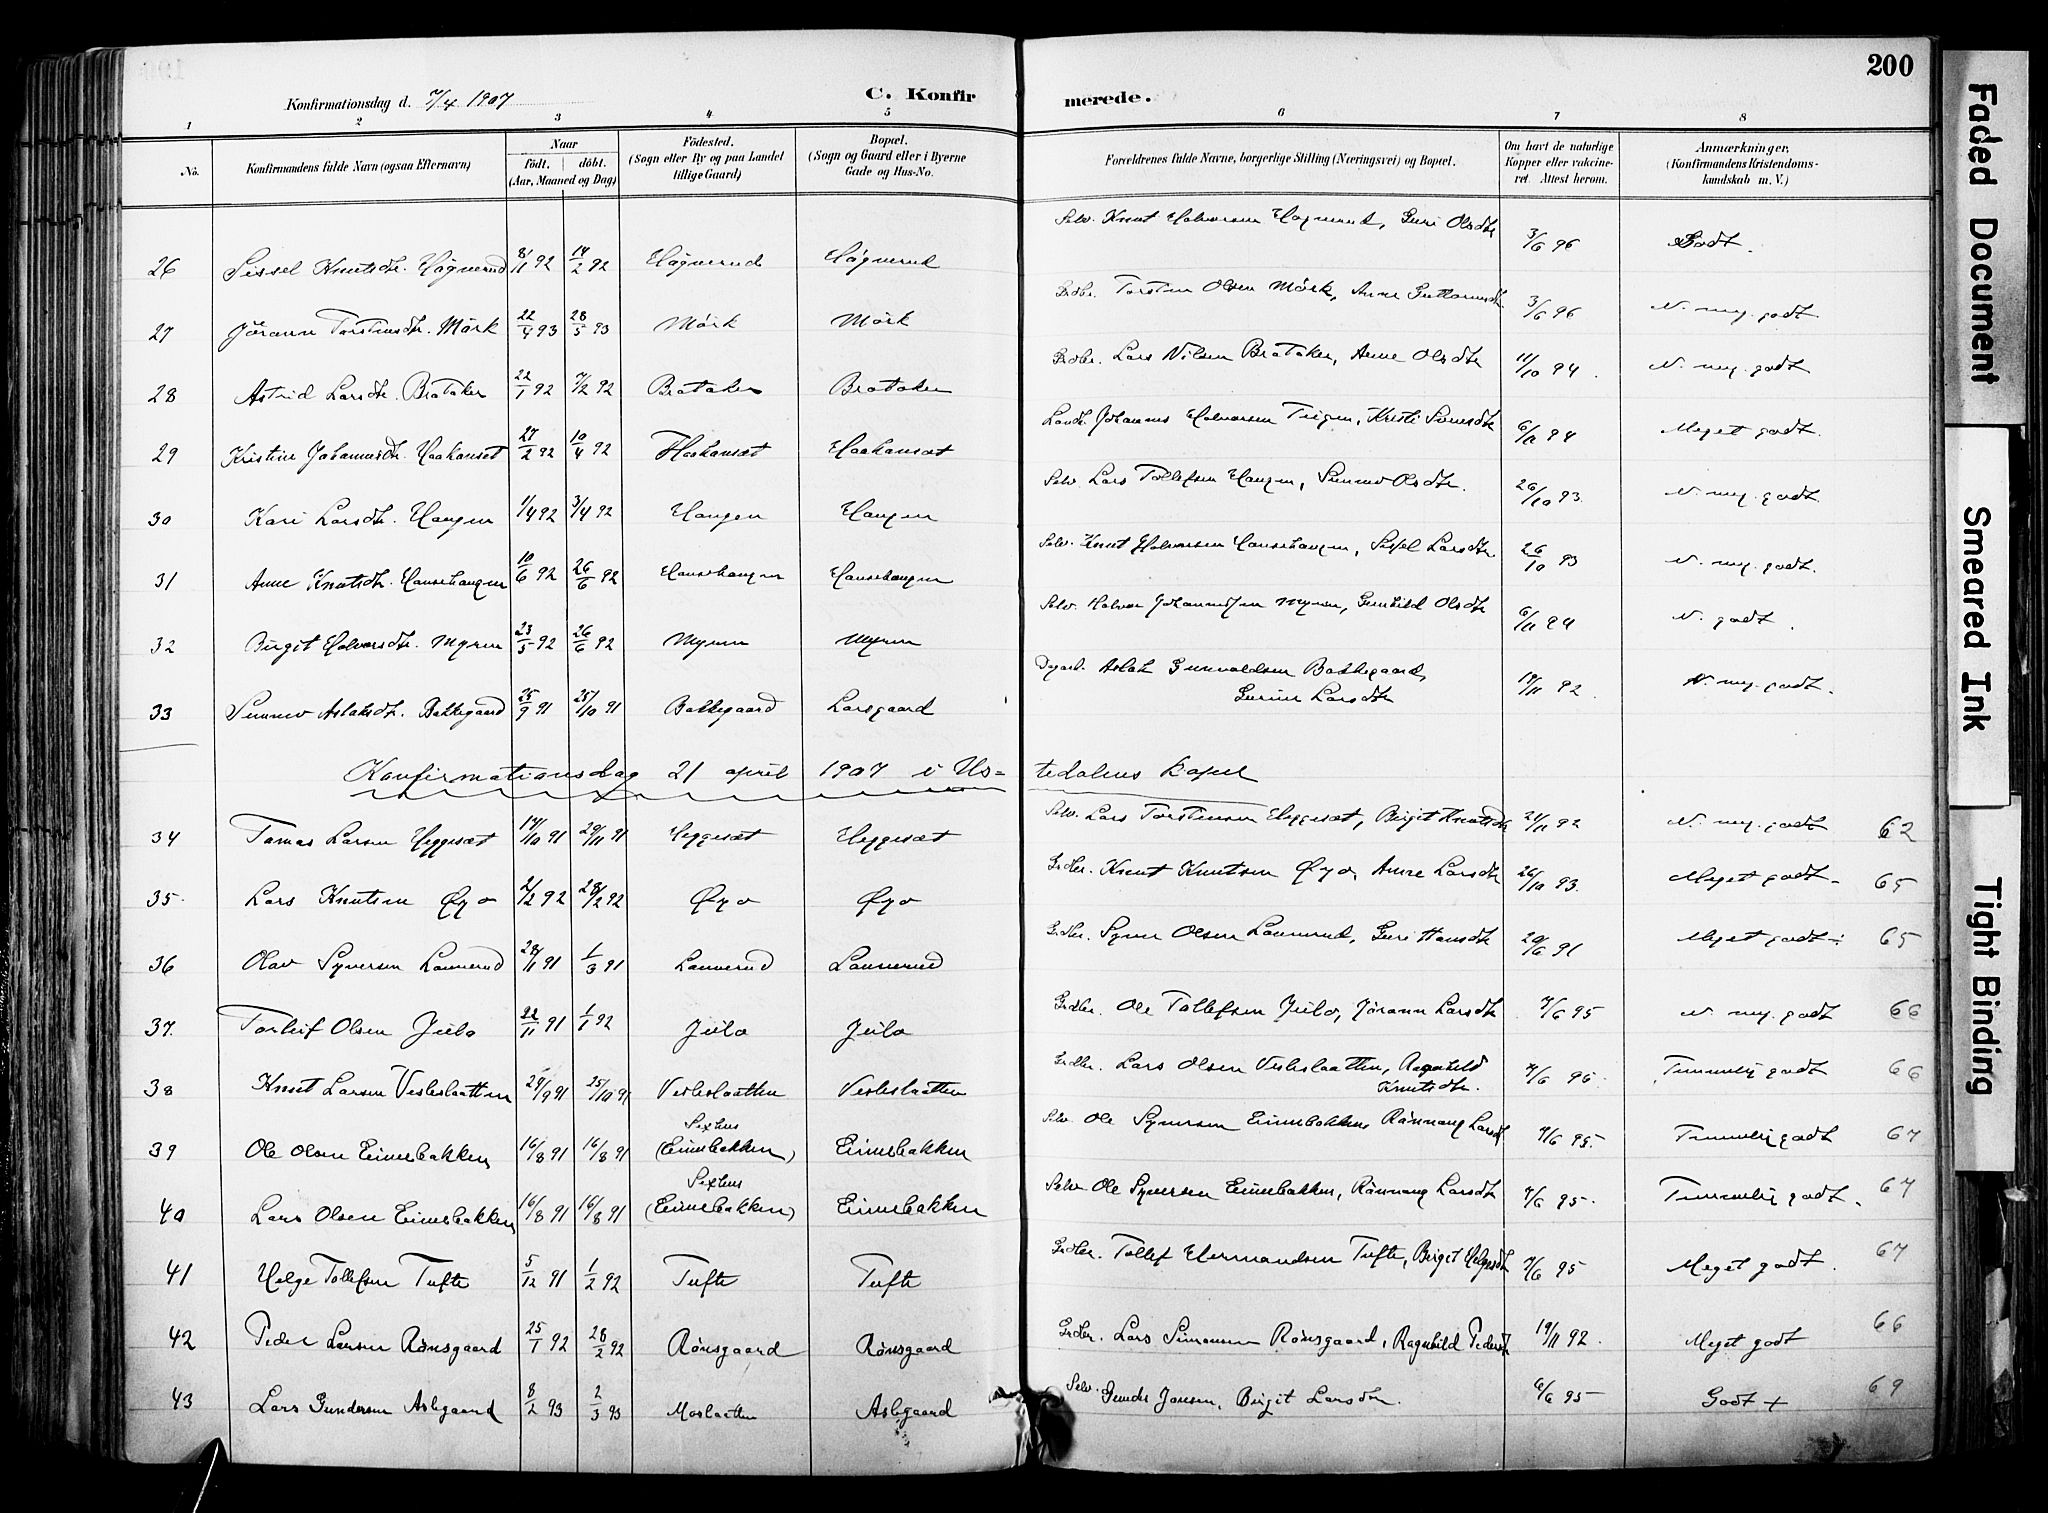 200
Konfirmationsdag d. 7/4 1907
C. Konfirmerede.
1 2 3 4 5 6 7 8
No.
Konfirmandens fulde Navn (ogsaa Efternavn)
Naar født. døbt. (Aar, Maaned og Dag)
Fødested. (Sogn eller By og paa Landet tillige Gaard)
Bopæl. (Sogn og Gaard eller i Byerne Gade og Hus-No.
Forældrenes fulde Navne, borgerlige Stilling (Næringsvei) og Bopæl.
Om havt de naturlige Kopper eller vakcineret. Attest herom.
Anmærkninger, (Konfirmandens Kristendomskundskab m. V.)
26 Sissel Knutsdtr. Høgnerud 8/11 92 14/2 92 Høgnerud Høgnerud Selv. Knut Halvorsen Høgnerud, Guri Olsdtr 3/6 96 Godt.
27 Jörann Torstensdtr. Mörk 22/4 93 28/5 93 Mörk Mörk Grdbr. Torsten Olsen Mörk, Anne Guttormsdtr. 3/6 96 N. my. godt
28 Astrid Larsdtr. Brataker 22/1 92 7/2 92 Brataker Brataker Grdbr. Lars Nilsen Brataker, Anne Olsdtr 11/10 94. N. my. godt
29 Kristine Johannesdtr. Haakanset 27/2 92 10/4 92 Haakanset Haakansæt Johannes Halvorsen Teigen, Kristi Svensdtr 6/11 94 Meget godt.
30 Kari Larsdtr. Haugen 1/4 92 3/4 92 Haugen Haugen Selv. Lars Tollefsen Haugen, Sunnev Olsdtr. 26/10 93. N. my. godt
31 Anne Knutsdtr. Hansehaugen 10/6 92 26/6 92 Hansehaugen Hansehaugen Selv. Knut Halvorsen Hansehaugen, Sissel Larsdtr. 26/10 93 N. my. godt.
32 Birgit Halvorsdtr. Myren 23/5 92 26/6 92 Myren Myren Selv. Halvor Johannessen Myren, Gunhild Olsdtr 6/11 94 N. godt.
33 Sunnev Aslaksdtr. Bakkegaard 25/9 91 25/10 91 Bakkegaard Larsgaard Dagarb. Aslak Gunvaldsen Bakkegaard, 19/11 92. N. my. godt.
Larsdtr
Konfirmationsdag 21 april 1907 i Ustedalens kapel
34 Tomas Larsen Heggesæt 14/10 91 29/11 91 Heggesæt Heggesæt Selv. Lars Torstensen Heggesæt, Birgit Knutsdtr 21/11 92 N. my. godt 62
35. Lars Knutsen Øyo 2/2 92 28/2 92 Øyo Øyo Grdbr. Knut Knutsen Øyo, Anne Larsdtr 26/10 93. Meget godt. 65
36 Olav Syversen Lannerud 28/11 91 1/3 91 Lannerud Lannerud Grdbr. Syver Olsen Lannerud, Guri Hansdtr 20/6 91 Meget godt 65
37. Torleif Olsen Jeilo 22/11 91 1/1 92 Jeilo Jeilo Grdbr. Ole Tollefsen Jeilo, Jörann Larsdtr 7/6 95 N. my. godt 66
38 Knut Larsen Vesleslaatten 24/9 91 25/10 91 Vesleslaatten Vesleslaatten Grdbr. Lars Olsen Vesleslaatten, Ragnhild Knutsdtr. 7/6 95. Temmelig godt 66
39 Ole Olsen Einebakken 16/8 91 16/8 91 (Einebakken) Einebakken Selv. Ole Syversen Einebakken, Rønnaug Larsdtr 7/6 95. Temmelig godt 67
40 Lars Olsen Einebakken 16/8 91 16/8 91 (Einebakken) Einebakken Selv. Ole Syversen Einebakken, Rønnaug Larsdtr 7/6 95. Temmelig godt. 67
41 Helge Tollefsen Tufte 5/12 91 1/2 92 Tufte Tufte Grdbr. Tollef Hermandsen Tufte, Birgit Helgesdtr 7/6 95 Meget godt. 67
42 Peder Larsen Rønsgaard 25/1 92 28/2 92 Rønsgaard Rønsgaard Grdbr. Lars Simonsen Rønsgaard, Ragnhild Pedersdtr 19/11 92. Meget godt 66
43 Lars Gundersen Aslegaard 8/2 93 2/3 93 Moslaatten Aslegaard Selv. Gunder Jonsen, Birgit Larsdtr. 6/6 95 Godt + 69
Faded Document
Smeared Ink
Tight Binding